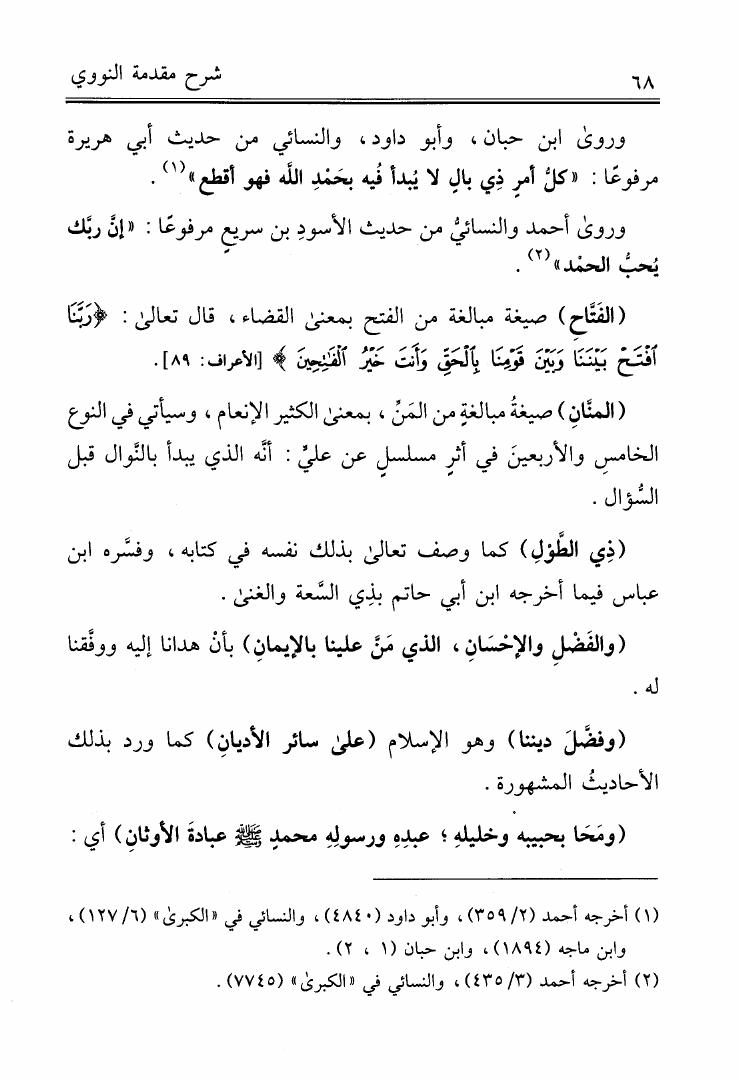 ٦٨
شرح مقدمة النووي
وروىٰ ابن حبان، وأبو داود، والنسائي من حديث أبي هريرة
مرفوعًا: «كلُّ أمرٍ ذِي بالٍ لا يُبدأ فُيه بحَمْدِ اللَّه فهو أقطع»(١).
وروىٰ أحمد والنسائيُّ من حديث الأسودِ بن سريعٍ مرفوعًا: «إنَّ ربَّك
يُحبُّ الحمْد»(٢).
(الفَتَّاحِ) صيغة مبالغة من الفتح بمعنىٰ القضاء، قال تعالىٰ: ﴿رَبَّنَا
ٱفْتَحْ بَيْنَنَا وَبَيْنَ قَوْمِنَا بِٱلْحَقِّ وَأَنتَ خَيْرُ ٱلْفَٰتِحِينَ﴾ [الأعراف: ٨٩].
(المنَّانِ) صيغةُ مبالغةٍ من المَنِّ، بمعنىٰ الكثير الإنعام، وسيأتي في النوع
الخامسِ والأربعينَ في أثرٍ مسلسلٍ عن عليٍّ: أنَّه الذي يبدأ بالنَّوال قبل
السُّؤال.
(ذِي الطَّوْلِ) كما وصف تعالىٰ بذلك نفسه في كتابه، وفسَّره ابن
عباس فيما أخرجه ابن أبي حاتم بذِي السَّعة والغنىٰ.
(والفَضْلِ والإحْسَانِ، الذي مَنَّ علينا بالإيمانِ) بأنْ هدانا إليه ووفَّقنا
له.
(وفضَّلَ ديننا) وهو الإسلام (علىٰ سائر الأديانِ) كما ورد بذلك
الأحاديثُ المشهورة.
(ومَحَا بحبيبه وخليلهِ؛ عبدِهِ ورسولِهِ محمدٍ ﷺ عبادةَ الأوثانِ) أي:
(١) أخرجه أحمد (٣٥٩/٢)، وأبو داود (٤٨٤٠)، والنسائي في «الكبرىٰ» (١٢٧/٦)،
وابن ماجه (١٨٩٤)، وابن حبان (١، ٢).
(٢) أخرجه أحمد (٤٣٥/٣)، والنسائي في «الكبرىٰ» (٧٧٤٥).